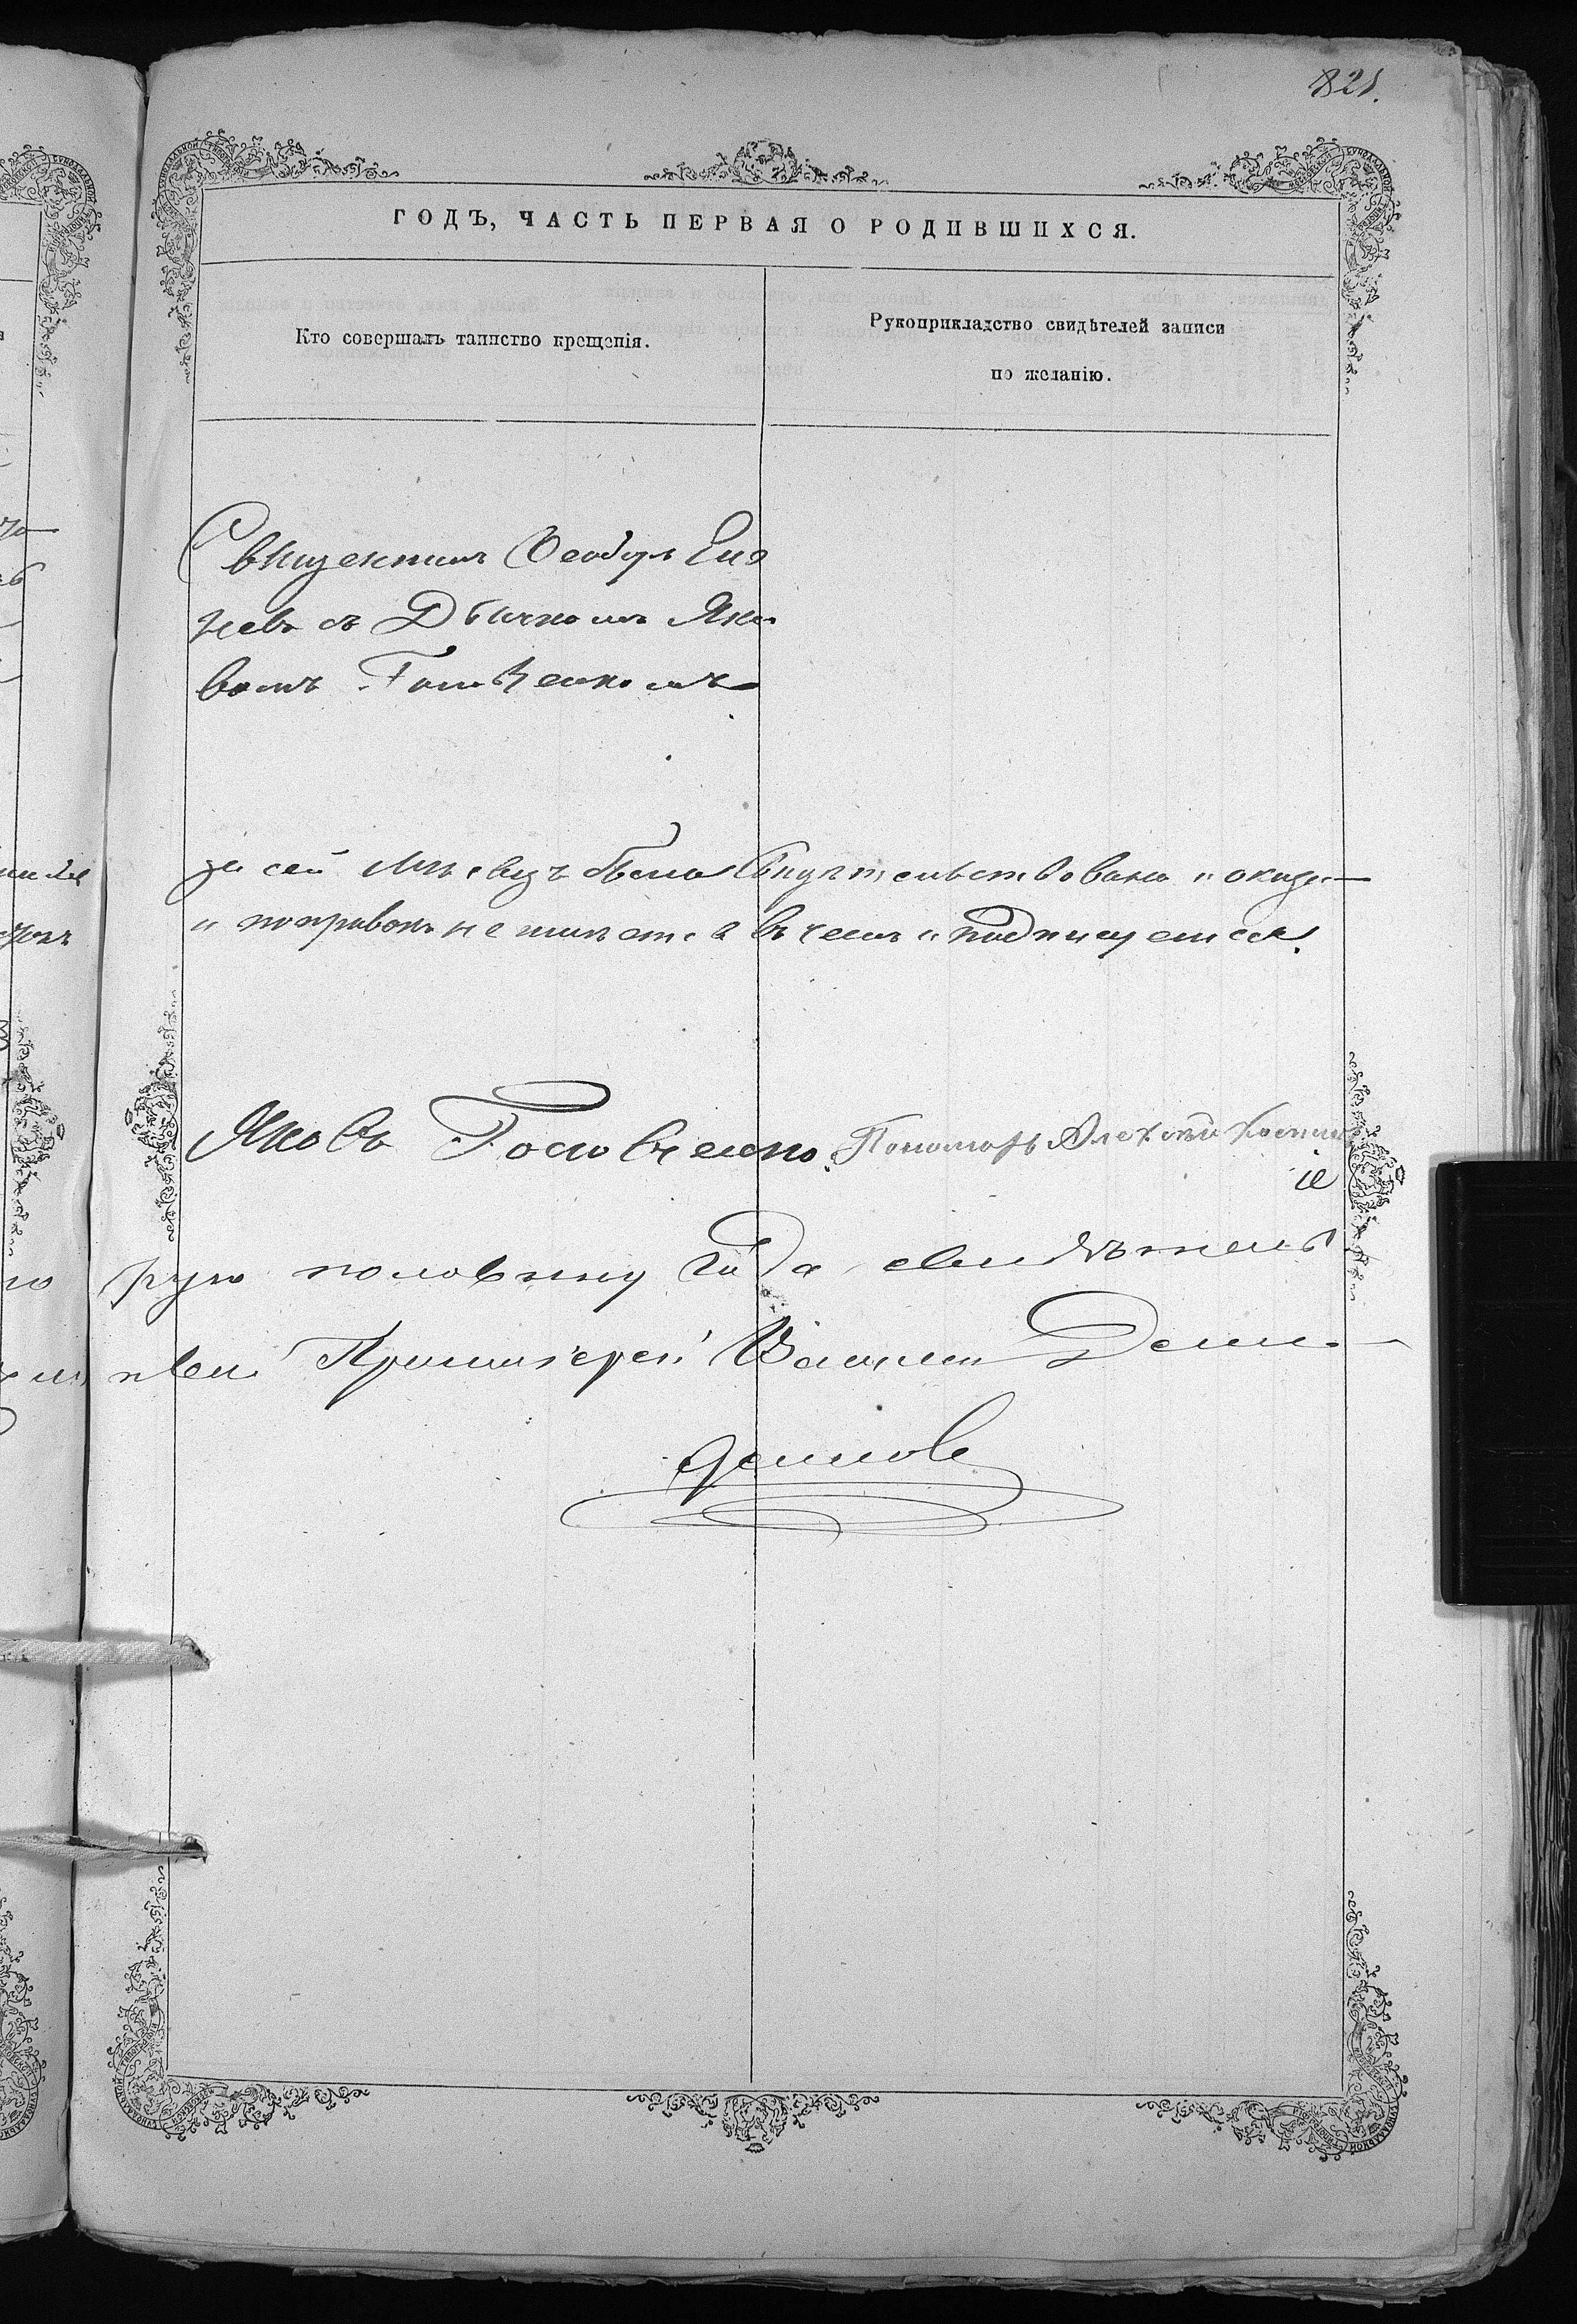 821.
ГОДЪ, ЧАСТЬ ПЕРВАЯ О РОДИВШИХСЯ.
Кто совершалъ таинство крещенія.
Рукоприкладство свидѣтелей записи
по желанію.
Священникъ Ѳеодоръ
съ Дьячкомъ Яко
вомъ Головченкомъ
за сей Мѣсяцъ была Свидѣтельствована и
и поправокъ не имѣется въ чемъ и подписуемся.
Яковъ Головченко. Пономарь Алексѣй
рую половину года свидѣтель
Протоіерей Василій